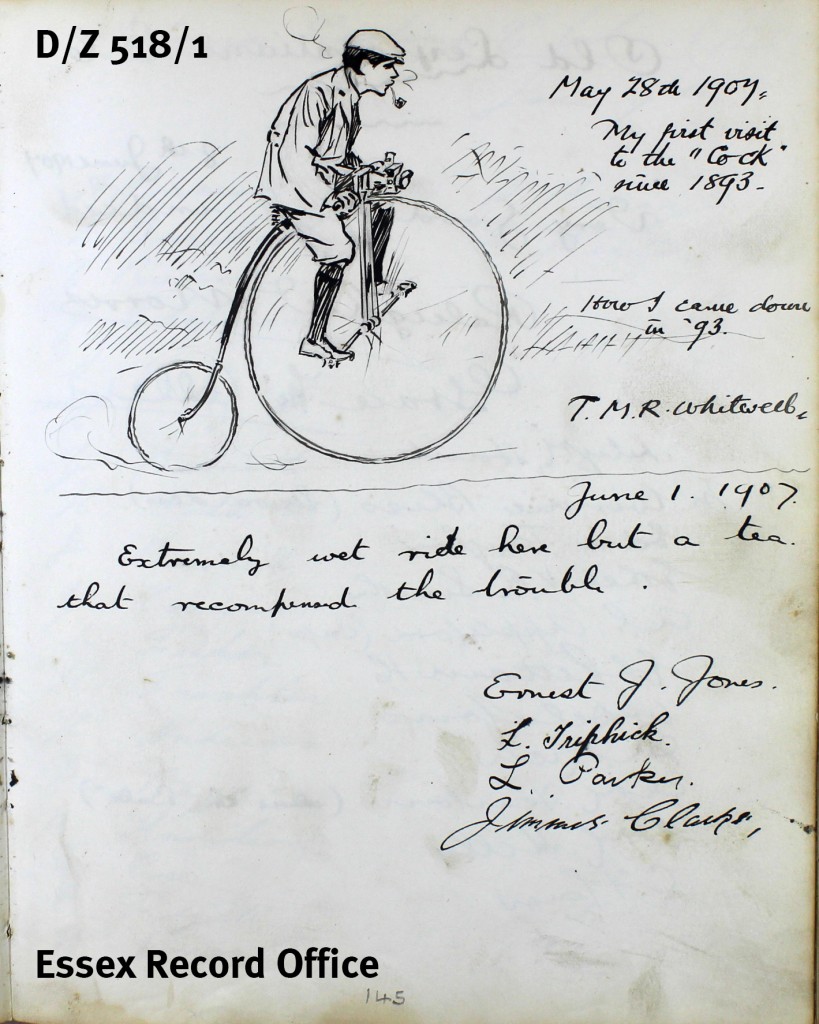 D/Z 518/1
May 28th 1907.
My first visit
to the "Cock"
since 1893-
How I came down
in '93.
T. M. R. Whitwell.
June 1. 1907.
Extremely wet ride here but a tea.
that recompensed the trouble.
Ernest J. Jones.
L. Triphick.
L. Parker.
Clarke,
Essex Record Office
145